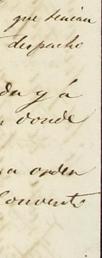 que tenian
despacho
da y á
donde
a orden
Convento